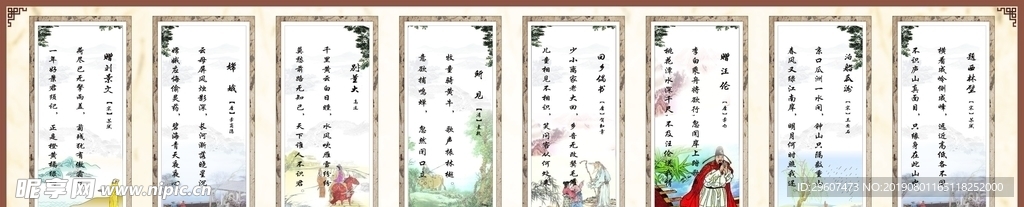 赠刘景文
【宋】苏轼
荷尽已无擎雨盖，菊残犹有傲霜
一年好景君须记，正是橙黄橘绿
嫦娥
【唐】李商隐
云母屏风烛影深，长河渐落晓星沉
嫦娥应悔偷灵药，碧海青天夜夜
别董大
高适
千里黄云白日曛，北风吹雁雪纷纷
莫愁前路无知己，天下谁人不识君
所见
【清】袁枚
牧童骑黄牛，歌声振林樾
意欲捕鸣蝉，忽然闭口立
回乡偶书
【唐】贺知章
少小离家老大回，乡音无改鬓毛
儿童相见不相识，笑问客从何处
赠汪伦
【唐】李白
李白乘舟将欲行，忽闻岸上踏歌
桃花潭水深千尺，不及汪伦送我
泊船瓜洲
【宋】王安石
京口瓜洲一水间，钟山只隔数重
春风又绿江南岸，明月何时照我还
题西林壁
【宋】苏轼
横看成岭侧成峰，远近高低各不同
不识庐山真面目，只缘身在此山
昵享网 www.nipic.cn
ID:29607473 NO:20190801165118252000